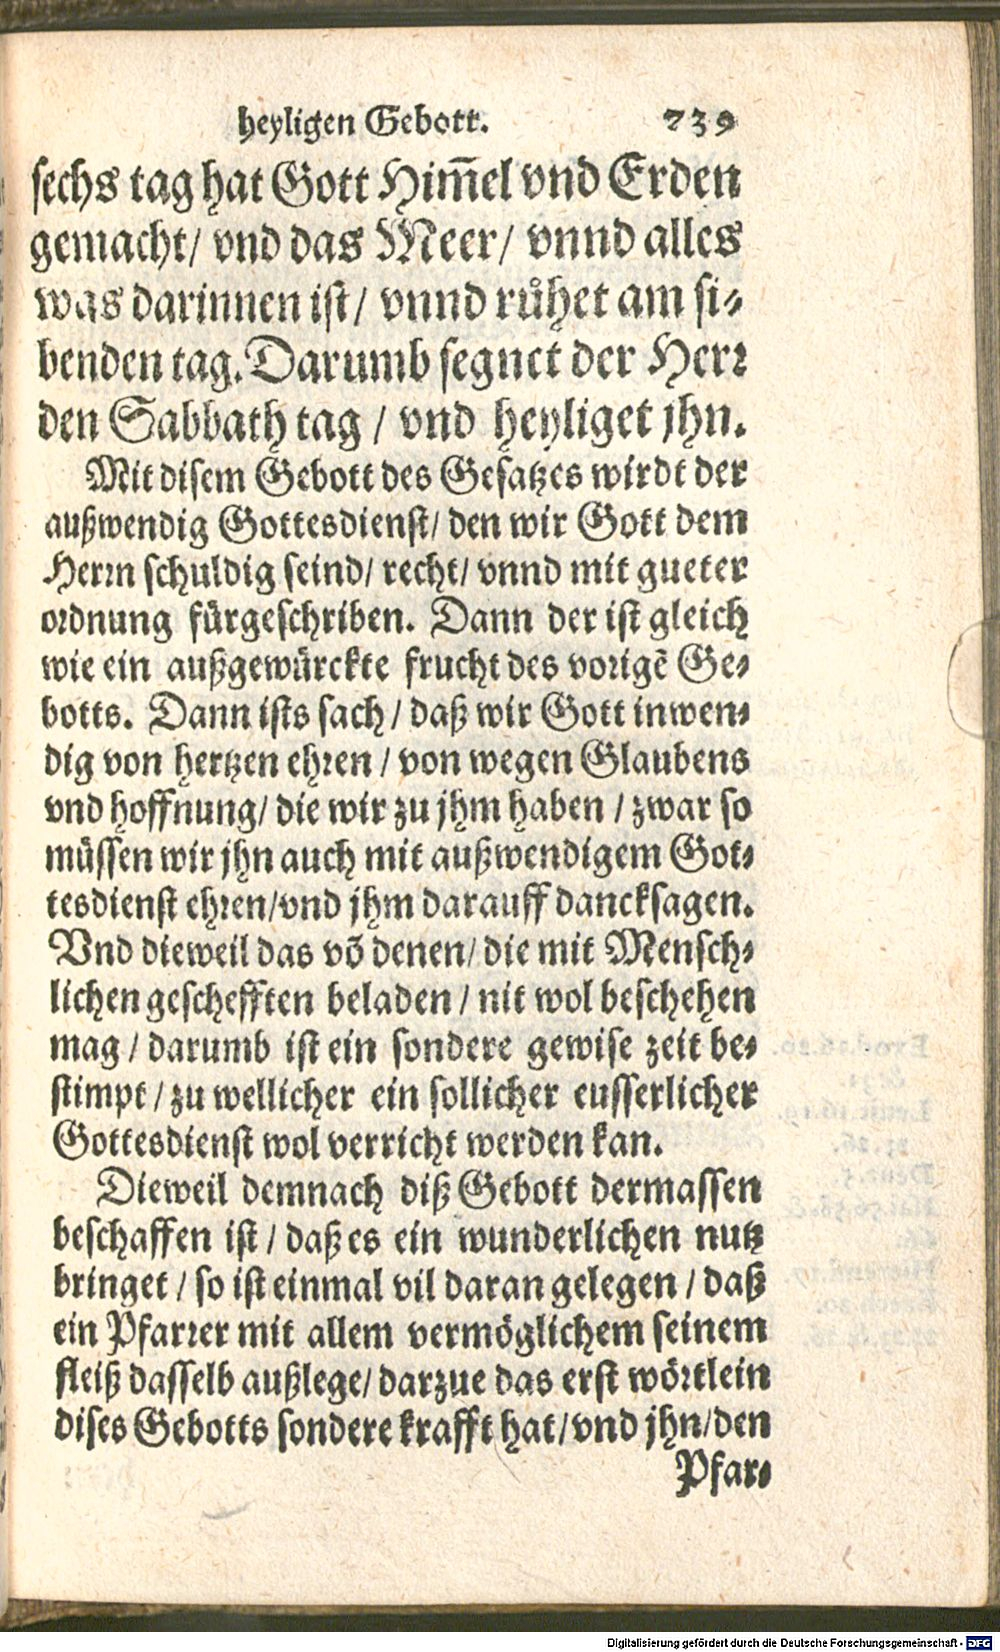 heyligen Gebott. 739
sechs tag hat Gott Him̄el vnd Erden
gemacht/ vnd das Meer/ vnnd alles
was darinnen ist/ vnnd růhet am si⸗
benden tag. Darumb segnet der Herr
den Sabbath tag / vnd heyliget jhn.
Mit disem Gebott des Gesatzes wirdt der
außwendig Gottesdienst/ den wir Gott dem
Herrn schuldig seind/ recht/ vnnd mit gueter
ordnung fürgeschriben. Dann der ist gleich
wie ein außgewürckte frucht des vorigẽ Ge⸗
botts. Dann ists sach / daß wir Gott inwen⸗
dig von hertzen ehren / von wegen Glaubens
vnd hoffnung/ die wir zu jhm haben / zwar so
müssen wir jhn auch mit außwendigem Got⸗
tesdienst ehren/vnd jhm darauff dancksagen.
Vnd dieweil das võ denen/ die mit Mensch⸗
lichen geschefften beladen / nit wol beschehen
mag / darumb ist ein sondere gewise zeit be⸗
stimpt / zu wellicher ein sollicher eusserlicher
Gottesdienst wol verricht werden kan.
Dieweil demnach diß Gebott dermassen
beschaffen ist / daß es ein wunderlichen nutz
bringet / so ist einmal vil daran gelegen / daß
ein Pfarrer mit allem vermöglichem seinem
fleiß dasselb außlege/ darzue das erst wörtlein
dises Gebotts sondere krafft hat/vnd jhn/den
Pfar⸗
Digitalisierung gefördert durch die Deutsche Forschungsgemeinschaft - DFG